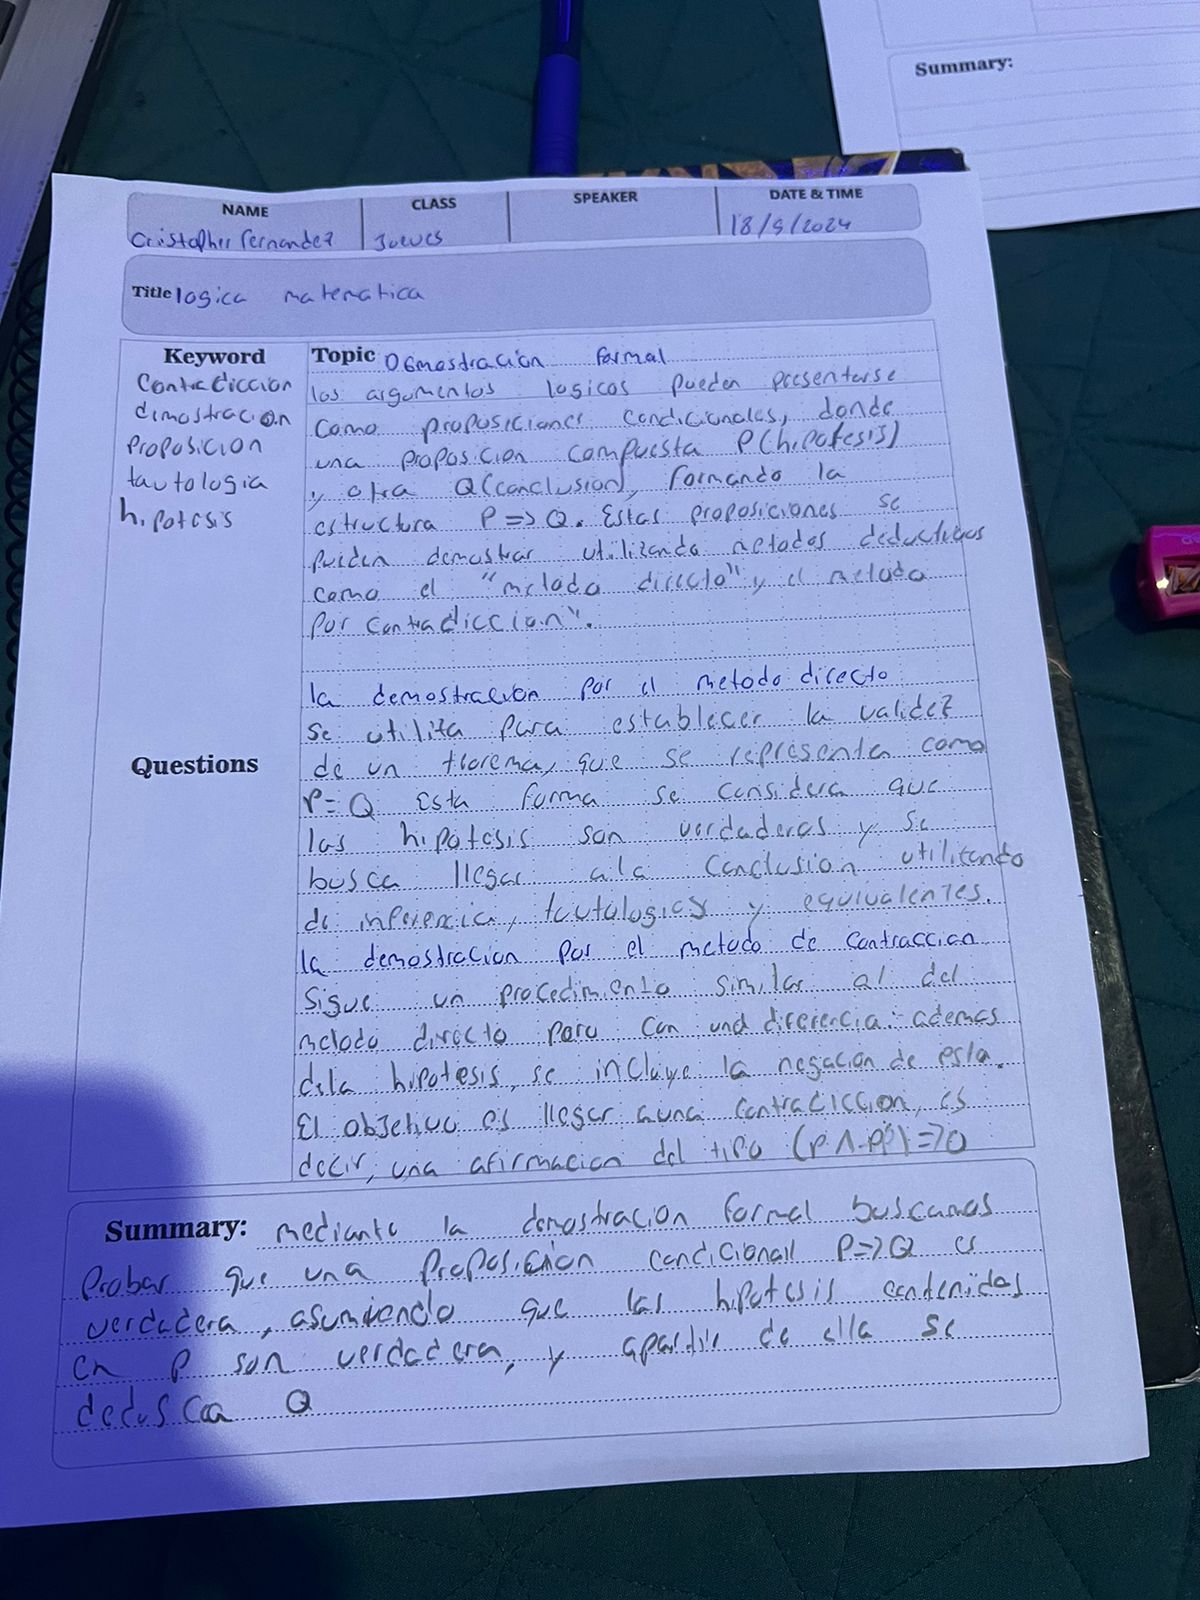 Summary:
NAME
CLASS
SPEAKER
DATE & TIME
Cristopher Fernandez
Jueves
18/9/2024
Title logica matematica
Keyword
Contradiccion
dimostracion
Proposicion
tautologia
hipotesis
Questions
Topic Demostracion formal
los argumentos logicos pueden presentarse
como proposiciones condicionales, donde
una proposicion compuesta P(hipotesis)
y otra Q(conclusion), formando la
estructura P => Q. Estas proposiciones se
pueden demostrar utilizando metodos deductivos
como el "metodo directo" y el metodo
por contradiccion".
la demostracion por el metodo directo
se utiliza para establecer la validez
de un teorema, que se representa como
P=Q Esta forma se considera que
las hipotesis son verdaderas y se
busca llegar ala conclusion utilizando
de inferencia, tautologias y equivalentes.
la demostracion por el metodo de contraccion
Sigue un procedimiento similar al del
metodo directo pero con una diferencia: ademas
dela hipotesis, se incluye la negacion de esta.
El objetivo es llegar auna contradiccion, es
decir, una afirmacion del tipo (P ∧ -P) => 0
Summary: mediante la demostracion formal buscamos
Probar que una Proposicion condicionall P=>Q es
verdadera, asumiendo que las hipotesis contenidas
en P son verdadera, y apartir de ella se
deduscca Q